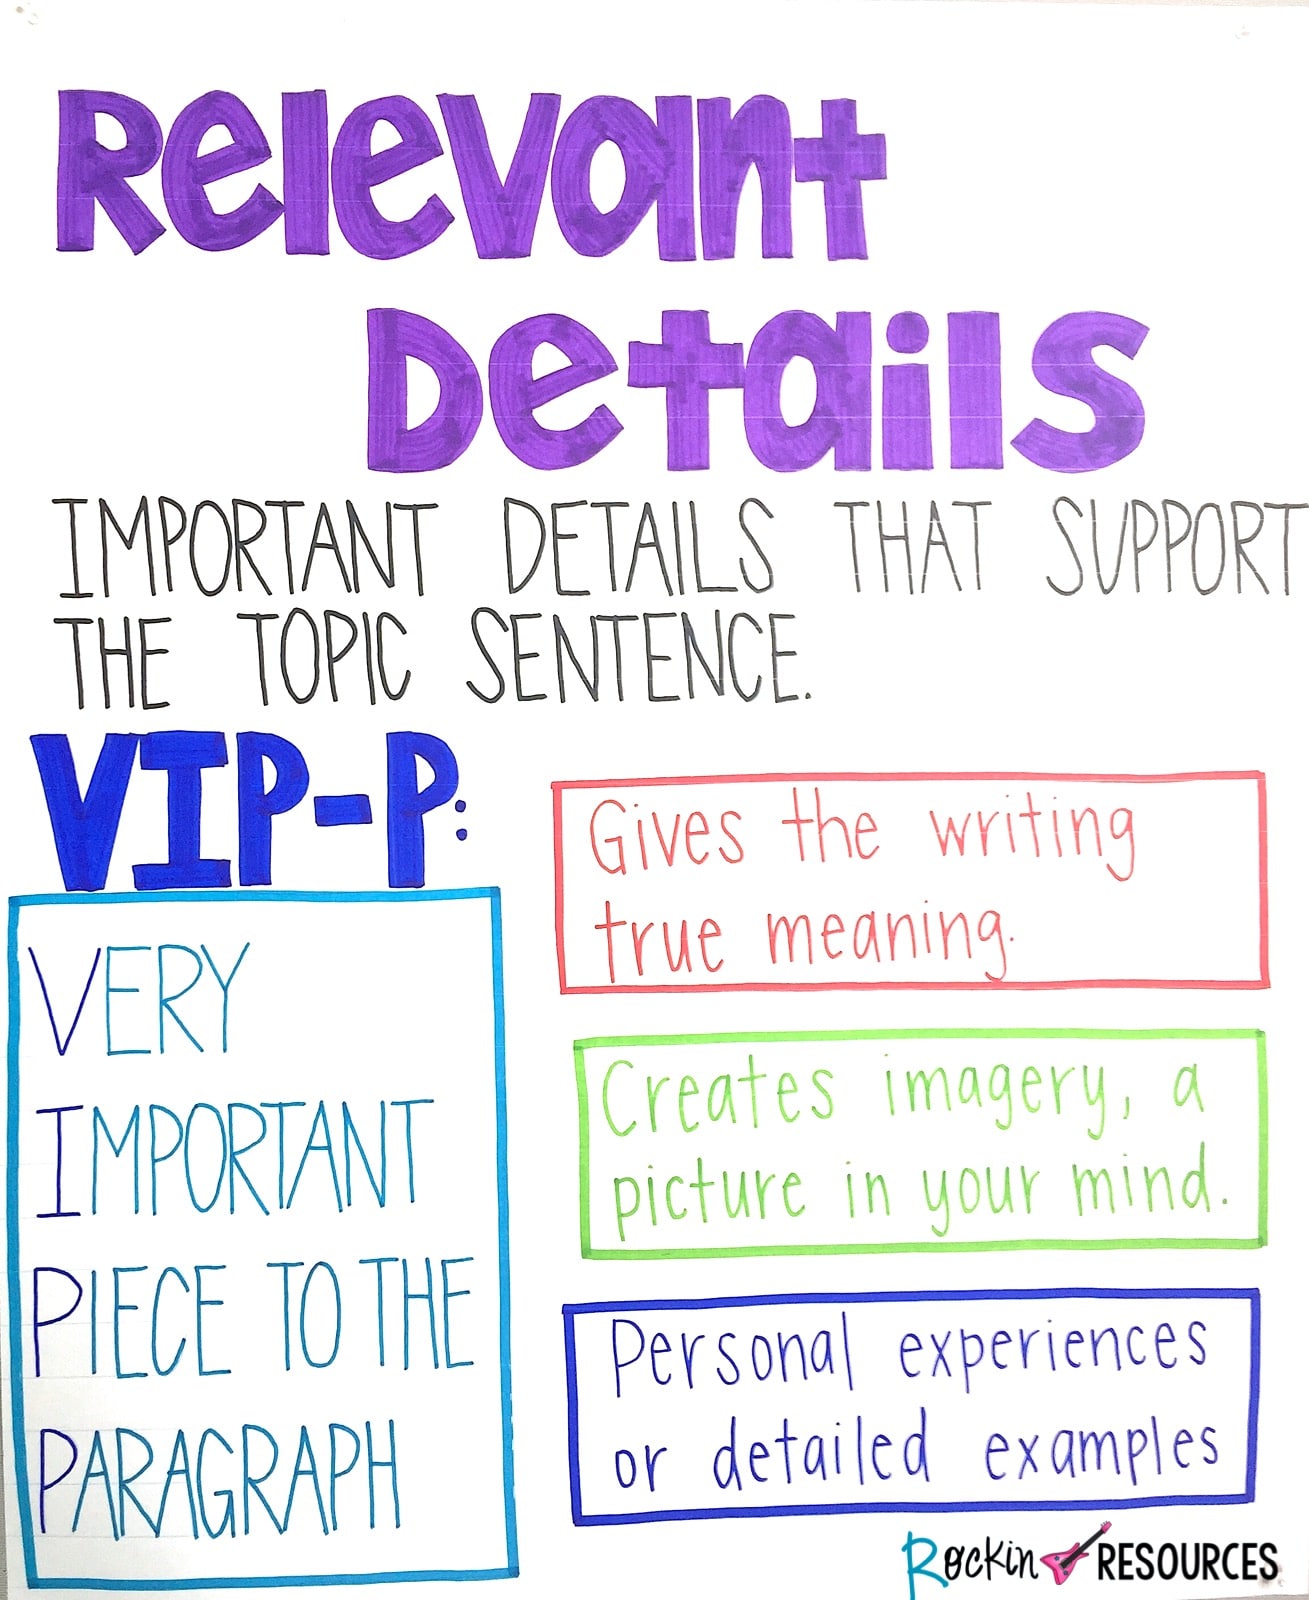 Relevant
Details
IMPORTANT DETAILS THAT SUPPORT
THE TOPIC SENTENCE.
VIP-P:
VERY
IMPORTANT
PIECE TO THE
PARAGRAPH
Gives the writing
true meaning.
Creates imagery, a
picture in your mind.
Personal experiences
or detailed examples
Rockin RESOURCES